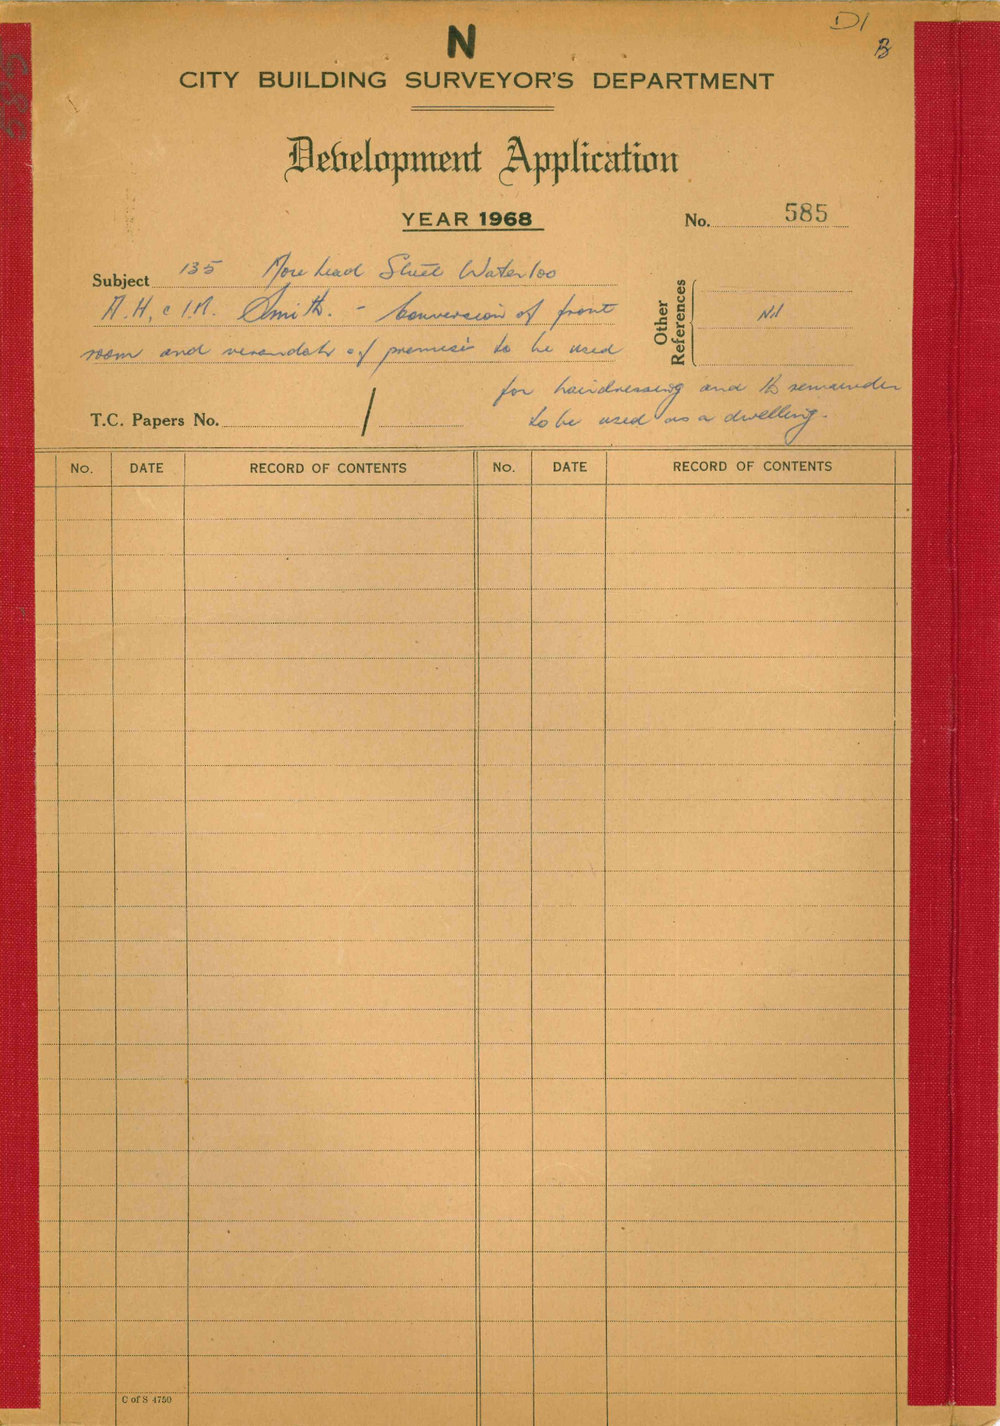 D1
B
N
CITY BUILDING SURVEYOR'S DEPARTMENT
Development Application
YEAR 1968
No. 585
Subject 135 Morehead Street Waterloo
A.H. & I.M. Smith. - Conversion of front
room and verandah of premises to be used
for hairdressing and the remainder
to be used as a dwelling.
Other References
Nil
T.C. Papers No. /
No. DATE RECORD OF CONTENTS No. DATE RECORD OF CONTENTS
C of S 4750